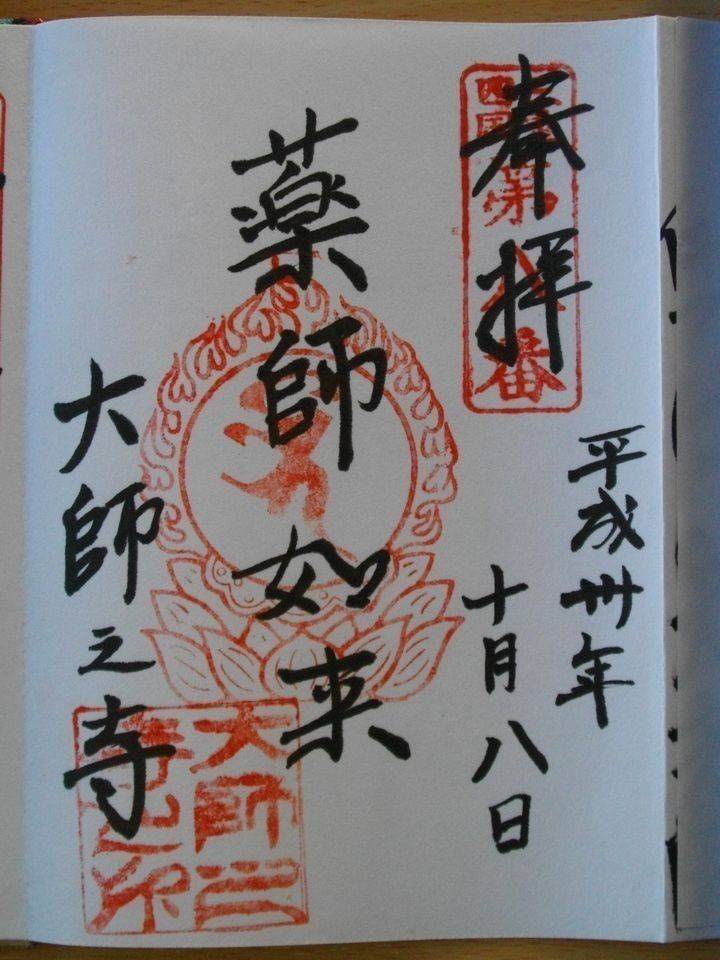 奉拝
四国
第
番
平成卅年
十月八日
薬師如来
大師之寺
大師之
寺之印